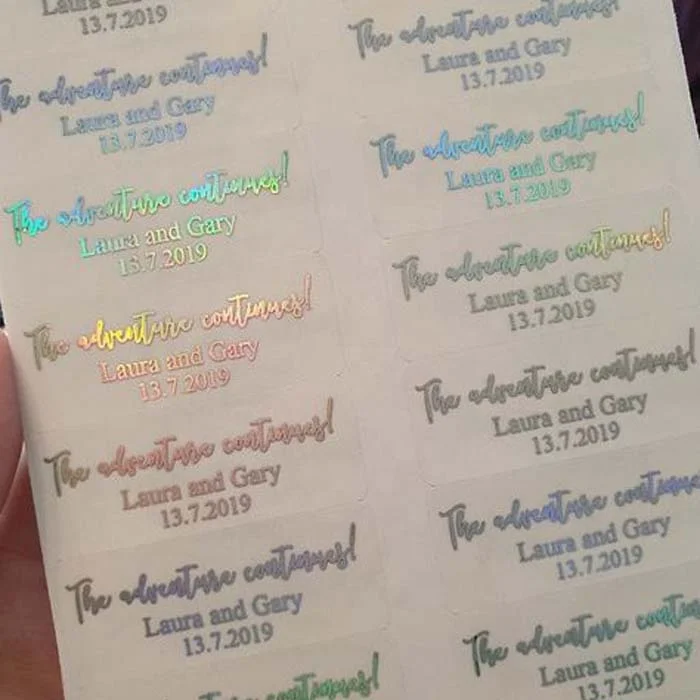 Laura and Gary
13.7.2019
The adventure continues!
Laura and Gary
13.7.2019
The adventure continues!
Laura and Gary
13.7.2019
The adventure continues!
Laura and Gary
13.7.2019
The adventure continues!
Laura and Gary
13.7.2019
The adventure continues!
Laura and Gary
13.7.2019
continues!
The adventure continues!
Laura and Gary
13.7.2019
The adventure continues!
Laura and Gary
13.7.2019
The adventure continues!
Laura and Gary
13.7.2019
The adventure continues!
Laura and Gary
13.7.2019
The adventure continues
Laura and Gary
13.7.2019
The adventure contin
Laura and Gary
13.7.2019